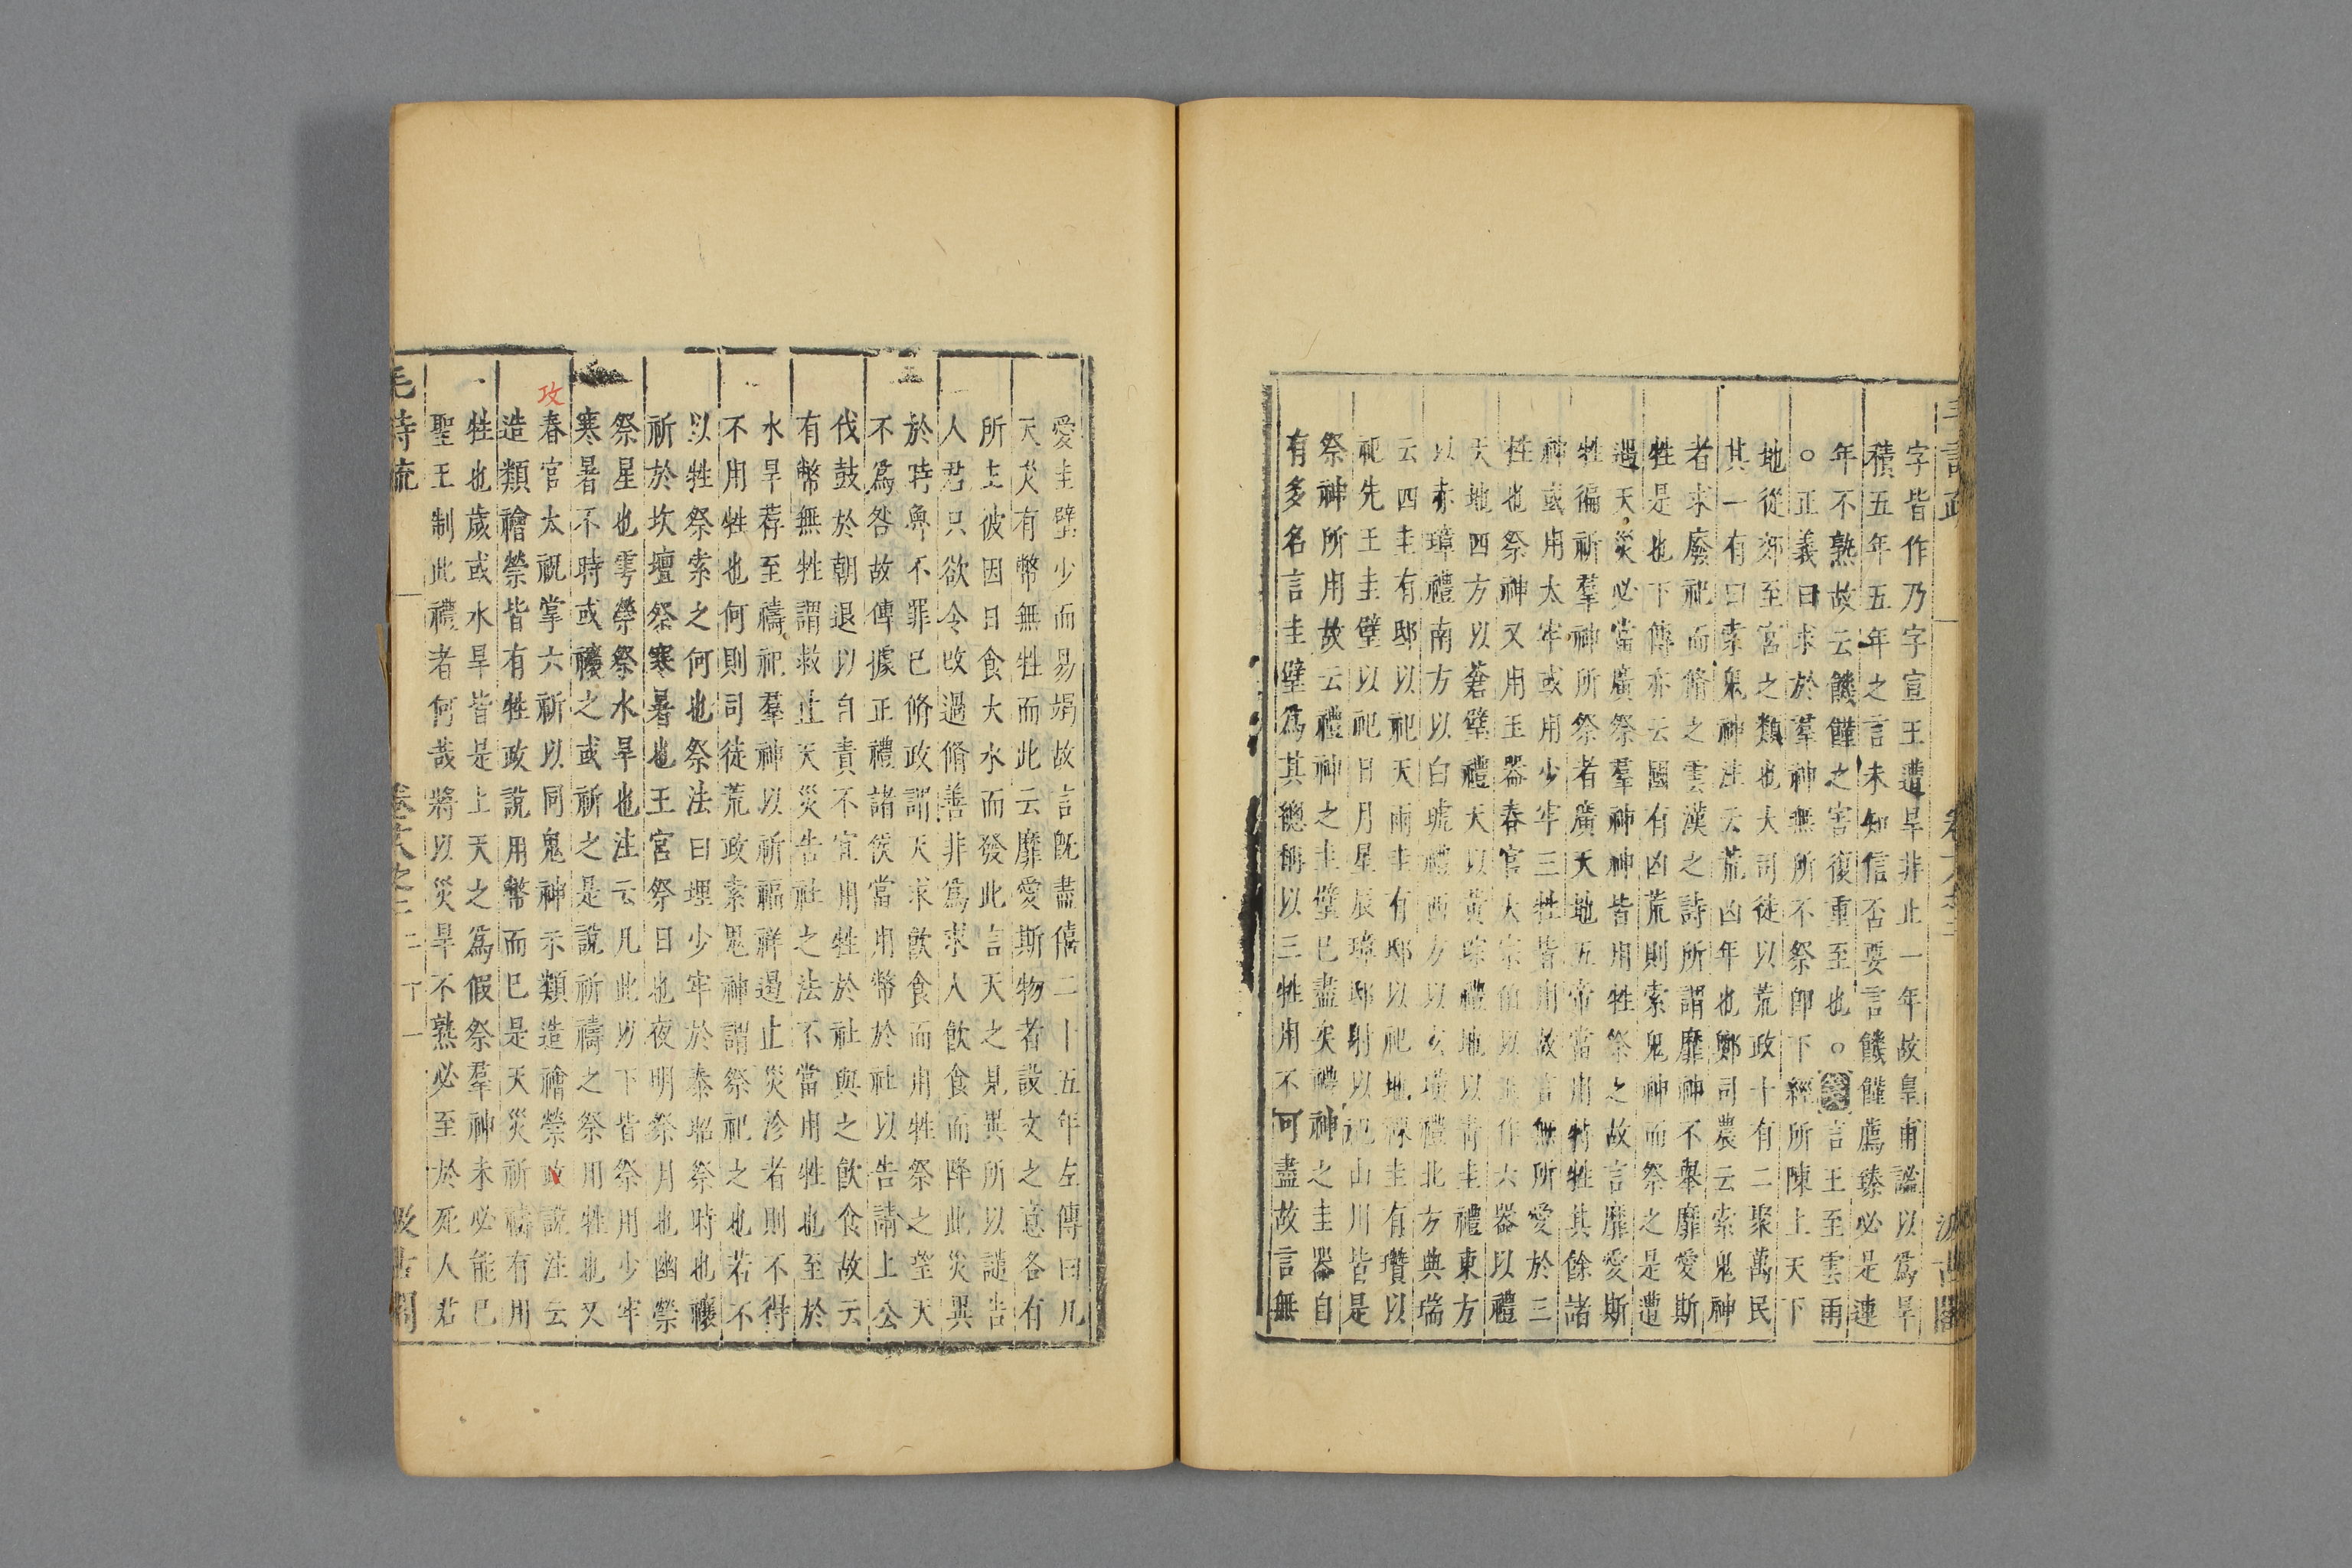 字皆作乃字宣王遭旱非止一年故皇甫謐以爲旱
積五年五年之言未知信否要言饑饉薦臻必是連
年不熟故云饑饉之害復重至也○箋言王至雲雨
○正義曰求於羣神無所不祭卽下經所陳上天下
地從郊至宮之類也大司徒以荒政十有二聚萬民
其一有曰索鬼神注云荒凶年也鄭司農云索鬼神
者求廢祀而脩之雲漢之詩所謂靡神不舉靡愛斯
牲是也下傳亦云國有凶荒則索鬼神而祭之是遭
遇天災必當廣祭羣神神皆用牲祭之故言靡愛斯
牲徧祈羣神所祭者廣天地五帝當用特牲其餘諸
神或用太牢或用少牢三牲皆用故言無所愛於三
牲也祭神又用玉器春官大宗伯以玉作六器以禮
天地四方以蒼璧禮天以黃琮禮地以青圭禮東方
以赤璋禮南方以白琥禮西方以玄璜禮北方典瑞
云四圭有邸以祀天兩圭有邸以祀地祼圭有瓚以
祀先王圭璧以祀日月星辰璋邸射以祀山川皆是
祭神所用故云禮神之圭璧已盡矣禮神之圭器自
有多名言圭璧爲其總稱以三牲用不可盡故言無
愛圭璧少而易竭故言旣盡僖二十五年左傳曰凡
天災有幣無牲而此云靡愛斯物者設文之意各有
所主彼因日食大水而發此言天之見異所以譴告
人君只欲令改過脩善非爲求人飲食而降此災異
於時奥不罪已脩政謂天求飲食而用牲祭之望天
不爲咎故傳據正禮諸侯當用幣於社以告請上公
伐鼓於朝退以自責不宜用牲於社與之飲食故云
有幣無牲謂救止天災告社之法不當用牲也至於
水旱荐至禱祀羣神以祈福祥遏止災沴者則不得
不用牲也何則司徒荒政索鬼神謂祭祀之也若不
以牲祭索之何也祭法曰埋少牢於泰昭祭時也禳
祈於坎壇祭寒暑也王宮祭日也夜明祭月也幽禜
祭星也雩禜祭水旱也注云凡此以下皆祭用少牢
寒暑不時或禳之或祈之是說祈禱之祭用牲也又
春官太祝掌六祈以同鬼神示類造禬禜政說注云
攻
造類禬禜皆有牲政說用幣而已是天災祈禱有用
牲也歲或水旱皆是上天之爲假祭羣神未必能已
聖王制此禮者何哉將以災旱不熟必至於死人君
毛詩疏 卷十八之二 二十一 汲古閣